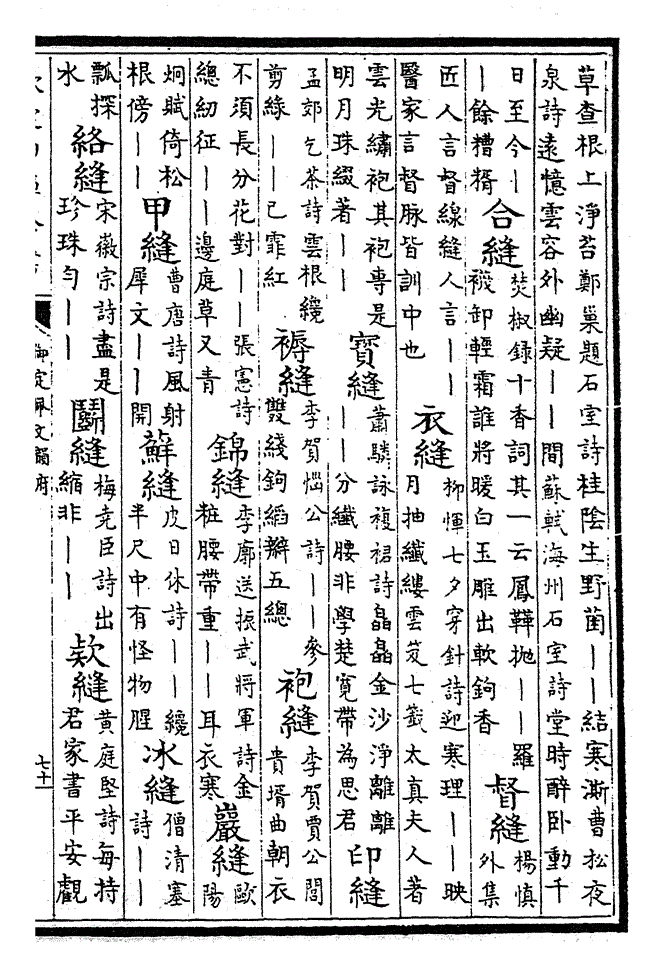 草查根上淨苔鄭巢題石室詩桂陰生野菌——結寒澌曹松夜
泉詩遠憶雲容外幽疑——間蘇軾海州石室詩堂時醉卧動千
日至今—
—餘糟糈
合縫
焚椒錄十香詞其一云鳳鞾抛——羅
襪卸輕霜誰將暖白玉雕出軟鉤香
督縫
楊慎
外集
匠人言督線縫人言——
醫家言督脉皆訓中也
衣縫
柳惲七夕穿針詩迎寒理——映
月抽纖縷雲笈七籤太真夫人著
雲光繡袍其袍専是
明月珠綴著——
寳縫
蕭驎詠複裙詩晶晶金沙淨離離
——分纖腰非學楚寛帶為思君
印縫
孟郊乞茶詩雲根纔
剪綠——已霏紅
褥縫
李賀惱公詩——參
雙綫鉤縚辮五總
袍縫
李賀賈公閭
貴壻曲朝衣
不須長分花對——張憲詩
總紉征——邊庭草又青
錦縫
李廓送振武將軍詩金
粧腰帶重——耳衣寒
巖縫
歐
陽
炯賦倚松
根傍——
甲縫
曹唐詩風射
犀文——開
蘚縫
皮日休詩——纔
半尺中有怪物腥
冰縫
僧清塞
詩——
瓢探
水
絡縫
宋徽宗詩盡是
珍珠勻——
鬭縫
梅堯臣詩出
縮非——
欵縫
黄庭堅詩每持
君家書平安觀
御定佩文韻府
七十一